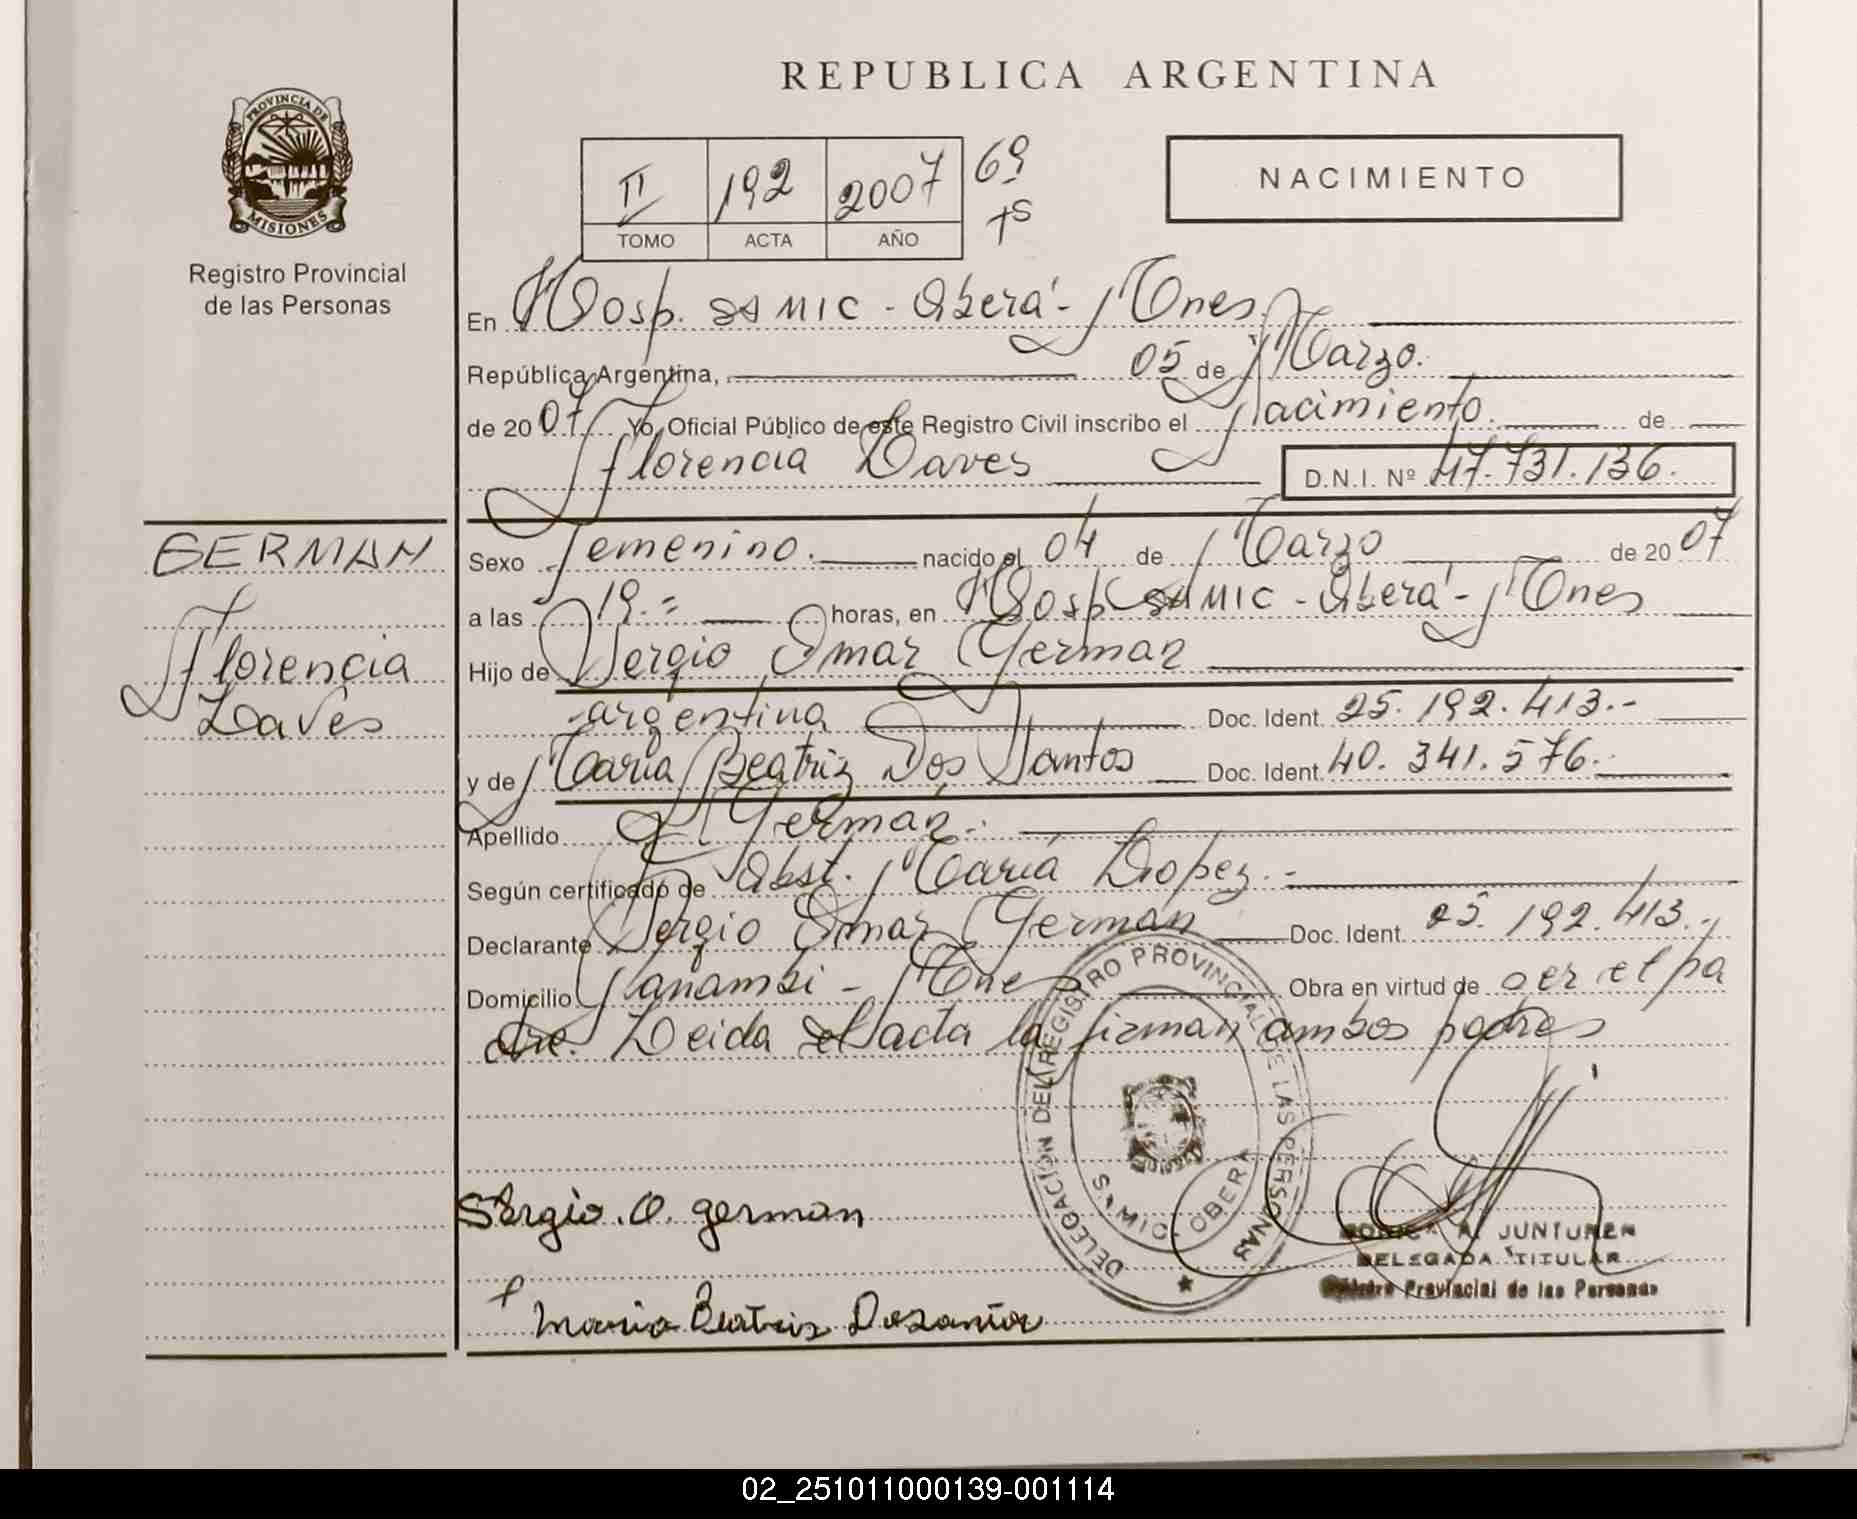 REPUBLICA ARGENTINA
PROVINCIA DE
MISIONES
Registro Provincial
de las Personas
II 192 2007 69
TOMO ACTA AÑO
NACIMIENTO
En Hosp. SAMIC - Oberá - Mnes.
República Argentina, 05 de Marzo.
de 2007 Yo, Oficial Público de este Registro Civil inscribo el Nacimiento. de
Florencia Daves D.N.I. Nº 47.731.136.
GERMAN
Florencia
Daves
Sexo femenino. nacido el 04 de Marzo de 2007
a las 19.= horas, en Hosp SAMIC - Oberá - Mnes
Hijo de Sergio Omar German
argentina Doc. Ident. 25.192.413.-
y de Maria Beatriz Dos Santos Doc. Ident. 40.341.576.-
Apellido Germán.-
Según certificado de Obst. María Lopez.-
Declarante Sergio Omar Germán Doc. Ident. 25.192.413.-
Domicilio Panambi - Mnes Obra en virtud de ser el pa
dre. Leida el acta la firman ambos padres
DELEGACION DEL REGISTRO PROVINCIAL DE LAS PERSONAS
SAMIC. OBERA
Sergio. O. german
Maria Beatriz Dosantos
A. JUNTUREN
DELEGADA TITULAR
Registro Provincial de las Personas
02_251011000139-001114